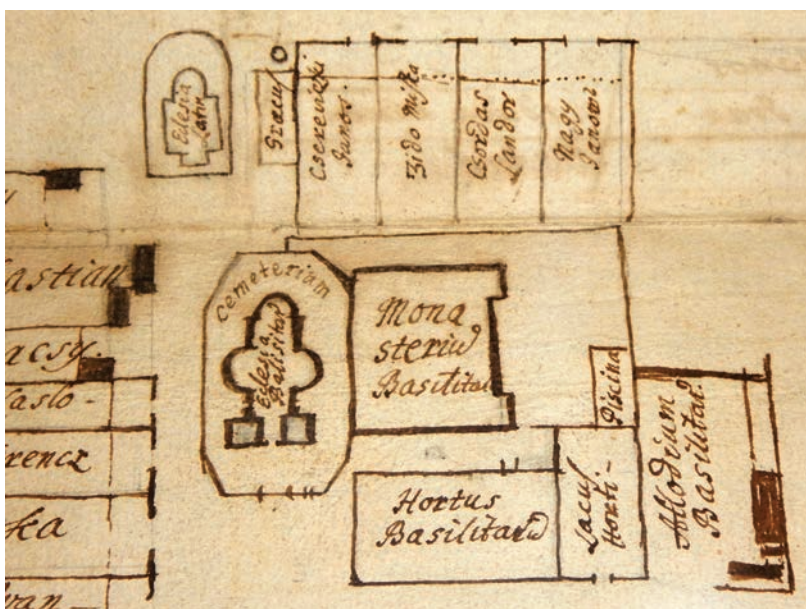 Eclesia
Latin
Græcus
Janos.
Zido Miska
Csordas
Sandor
Nagy
Janos
astian
acsy.
aslo-
erencz
ka
van
Cemeterium
Eclesia
Basilitar
Mona
steriu
Basilitar
Piscina
Hortus
Basilitaru
Lacus
Horti-
Allodrium
Basilitar.